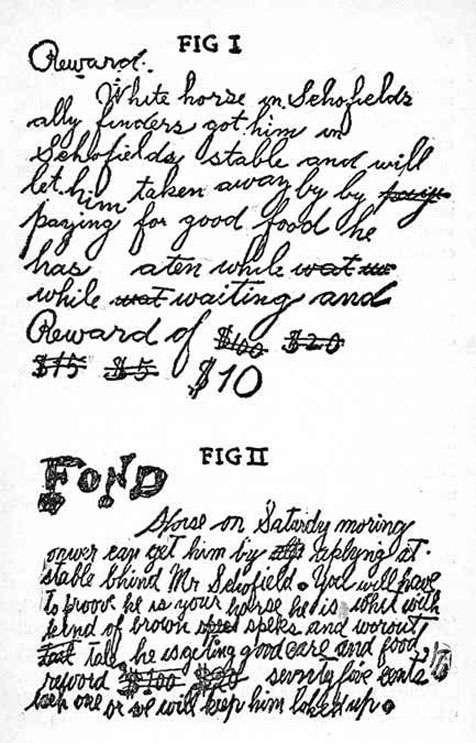 FIG I
Reward.
White horse in Schofields
ally finders got him in
Schofields stable and will
let him taken away by by pay
paying for good food he
has aten while wat
while wat waiting and
Reward of $100 $20
$15 $5 $10
FIG II
FOND
Horse on Saturdy moring
onwer can get him by applying at
stable bhind Mr Schofield. You will have
to proov he is your horse he is whit with
kind of brown speks and worout
tail, he is geting good care and food,
reword $100 $20 seventy five cents
to each one or we will keep him loked up.